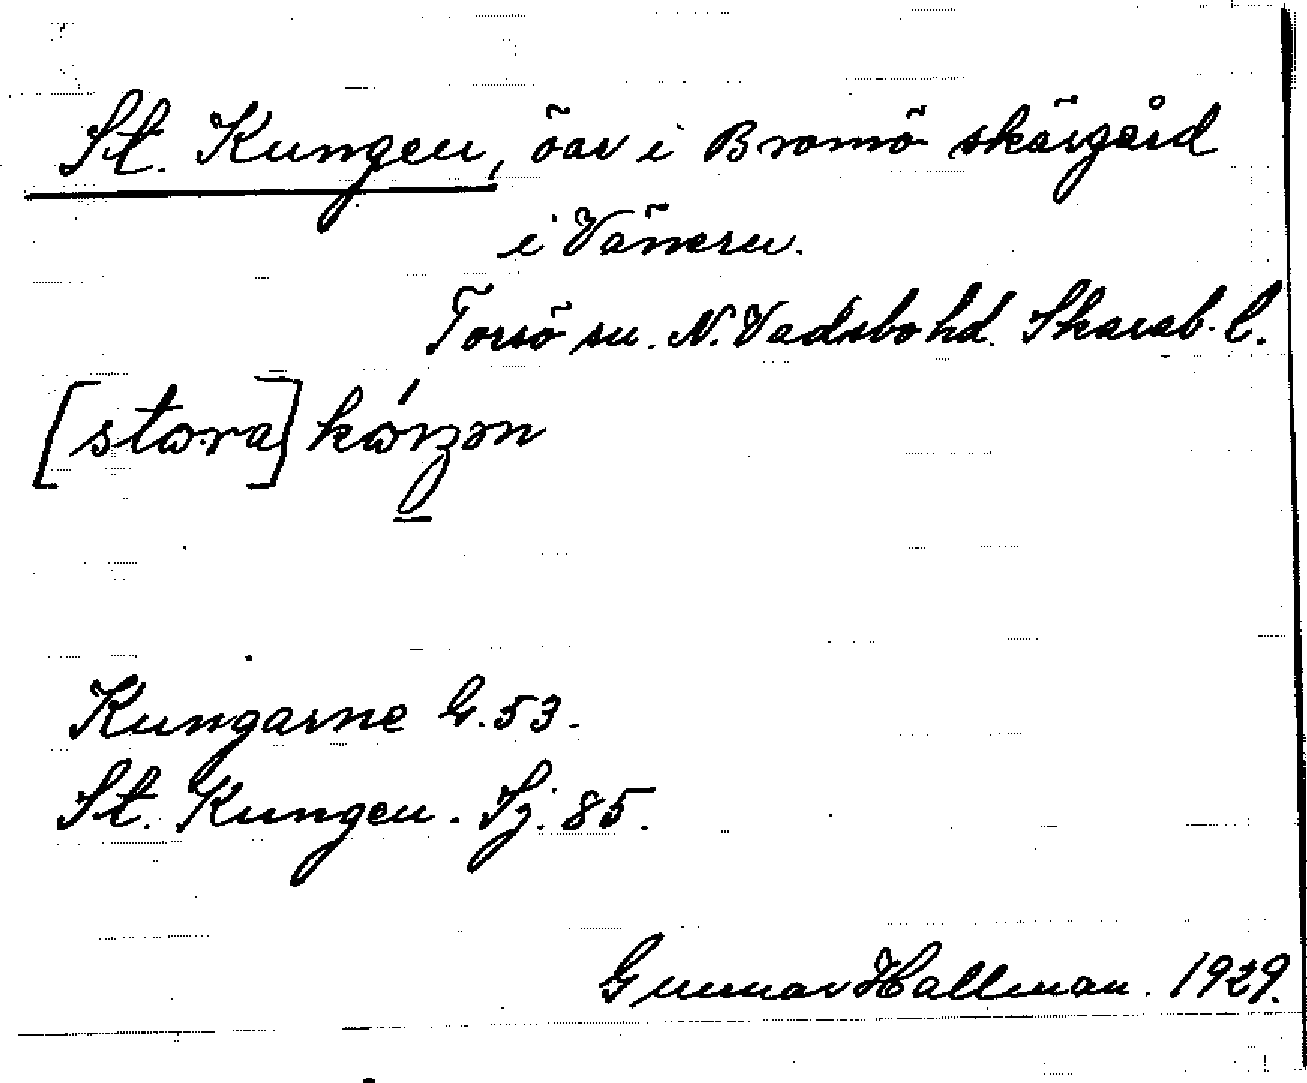 St. Kungen, öar i Bromö skärgård
i Vänern.
Torsö sn. N. Vadsbo hd. Skarab. l.
[stora]
Kungarne G. 53.
St. Kungen. Sj. 85.
Gunnar Hallman. 1929.